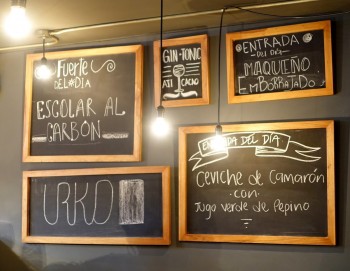 Fuerte
DEL DIA
ESCOLAR AL
CARBÓN
GIN-TONIC
ATI CACHO
ENTRADA
DEL DIA
MAQUEÑO
EMBORRAJADO
URKO
ENTRADA DEL DIA
CEVICHE de CAMARÓN
con
Jugo verde de Pepino